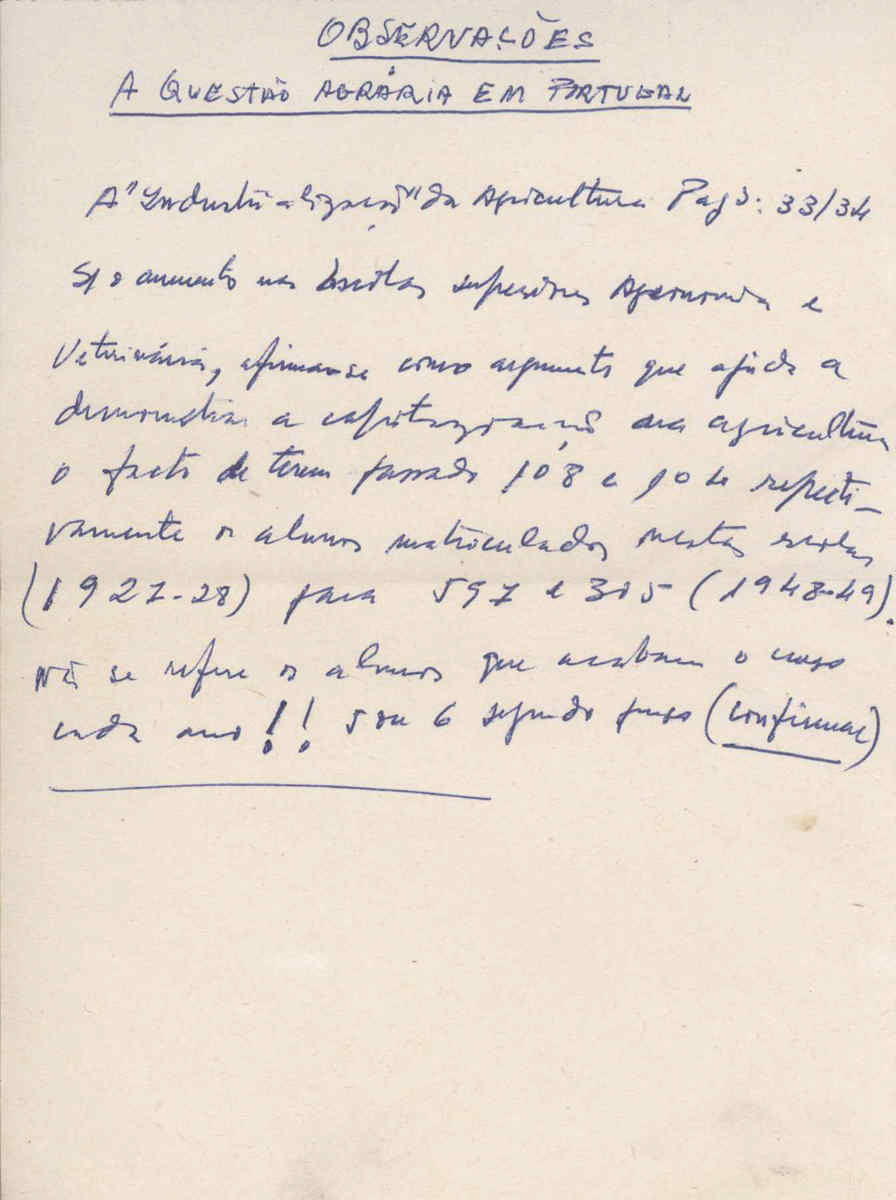 OBSERVAÇÕES
A QUESTÃO AGRÁRIA EM PORTUGAL
A "Industrialização" da Agricultura Pags: 33/34
S/ o aumento nas Escolas superiores Agronomia e
Veterinária, afirma-se como argumento que ajuda a
demonstrar a capitalização na agricultura
o facto de terem passado 108 e 104 respecti-
vamente os alunos matriculados nestas escolas
(1927-28) para 597 e 305 (1948-49).
Não se refere os alunos que acabam o curso
cada ano!! 5 ou 6 segundo penso (confirmar)